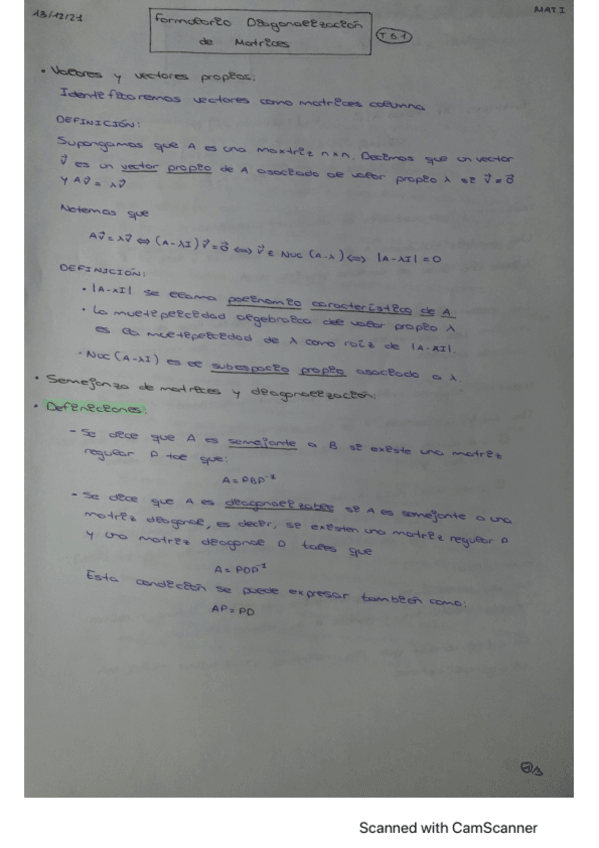 13/12/21
MAT I
Formulario Diagonalización
de Matrices
T 6.1
• Valores y vectores propios:
Identificaremos vectores como matrices columna
DEFINICIÓN:
Supongamos que A es una maxtriz n×n. Decimos que un vector
v⃗ es un vector propio de A asociado al valor propio λ si v⃗ = 0⃗
y Av⃗ = λv⃗
Notemos que
Av⃗ = λv⃗ ⟺ (A-λI)v⃗ = 0⃗ ⟺ v⃗ ∈ Nuc (A-λ) ⟺ |A-λI| = 0
DEFINICIÓN:
• |A-λI| se llama polinomio característico de A
• La multiplicidad algebraica del valor propio λ
es la multiplicidad de λ como raíz de |A-λI|.
• Nuc (A-λI) es el subespacio propio asociado a λ.
• Semejanza de matrices y diagonalización:
• Definiciones:
- Se dice que A es semejante a B si existe una matriz
regular P tal que:
A = PBP⁻¹
- Se dice que A es diagonalizable si A es semejante a una
matriz diagonal, es decir, si existen una matriz regular P
y una matriz diagonal D tales que
A = PDP⁻¹
Esta condición se puede expresar también como:
AP = PD
Scanned with CamScanner